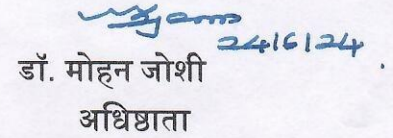 24/6/24
डॉ. मोहन जोशी
अधिष्ठाता